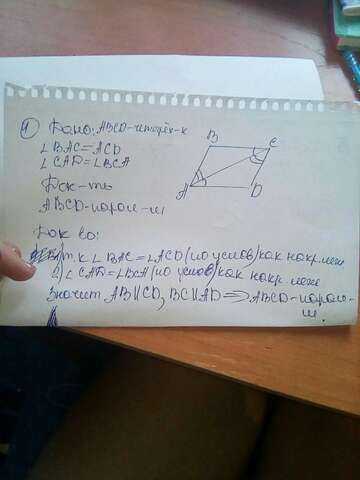 1) Дано: ABCD-четырёх-к
∠BAC=ACD
∠CAD=∠BCA
Док-ть
ABCD-парал-м
B
C
A
D
Док во:
т.к ∠BAC=∠ACD (по услов) как накр. леж
∠CAD=∠BCA (по услов) как накр леж
Значит AB∥CD, BC∥AD ⇒ ABCD-парал-
м.